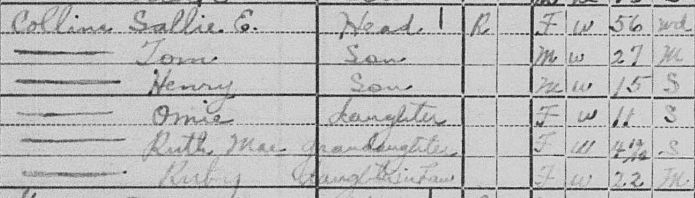 Collins Sallie E. Head 1 R F W 56 Wd
Tom Son M W 27 M
Henry Son M W 15 S
Omie daughter F W 11 S
Ruth Mae Grandaughter F W 4 S
Ruby Daught inLaw F W 22 M